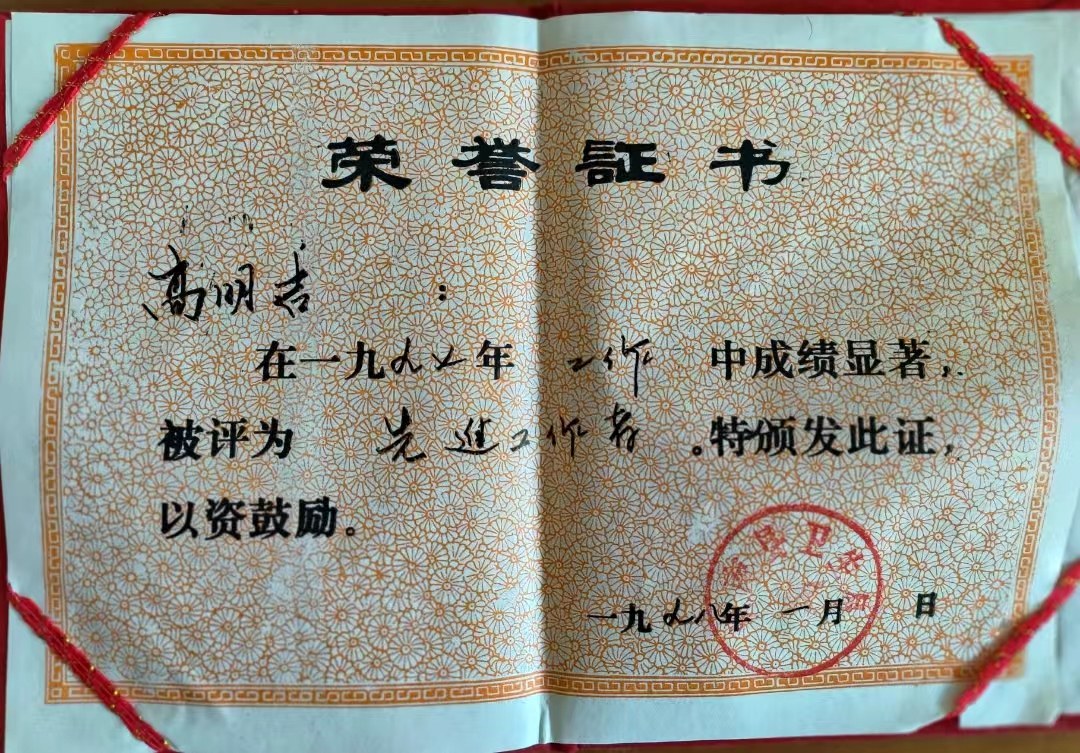 荣誉証书
高明吉：
在一九九七年工作中成绩显著，
被评为先进工作者。特颁发此证，
以资鼓励。
一九九八年一月 日